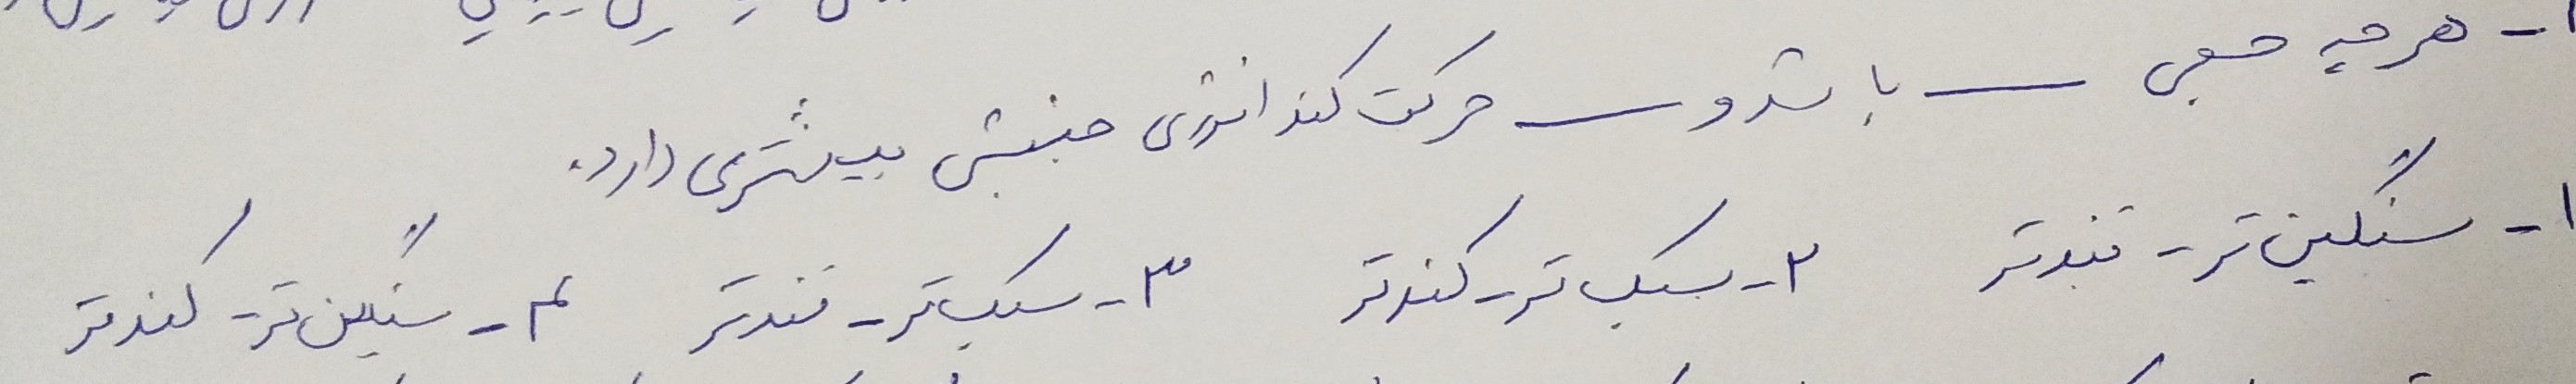 ۱- هرچه جسمی ـــ باشد و ـــ حرکت کند انرژی جنبشی بیشتری دارد.
۱- سنگین تر - تندتر ۲- سبک تر - کندتر ۳- سبک تر - تندتر ۴- سنگین تر - کندتر